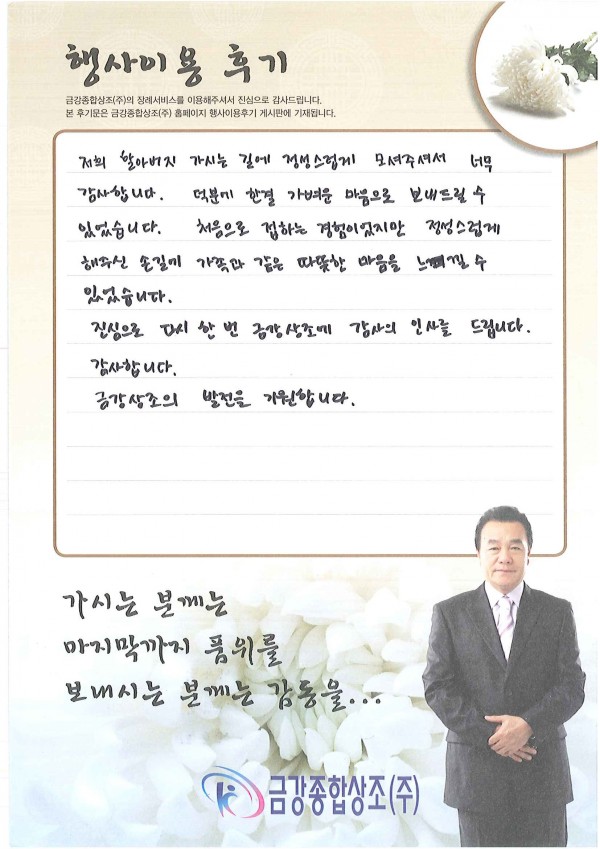 행사이용 후기
금강종합상조(주)의 장례서비스를 이용해주셔서 진심으로 감사드립니다.
본 후기문은 금강종합상조(주) 홈페이지 행사이용후기 게시판에 기재됩니다.
저희 할아버지 가시는 길에 정성스럽게 모셔주셔서 너무
감사합니다. 덕분에 한결 가벼운 마음으로 보내드릴 수
있었습니다. 처음으로 접하는 경험이었지만 정성스럽게
해주신 손길에 가족과 같은 따뜻한 마음을 느껴질 수
있었습니다.
진심으로 다시 한 번 금강상조에 감사의 인사를 드립니다.
감사합니다.
금강상조의 발전을 기원합니다.
가시는 분께는
마지막까지 품위를
보내시는 분께는 감동을...
금강종합상조(주)